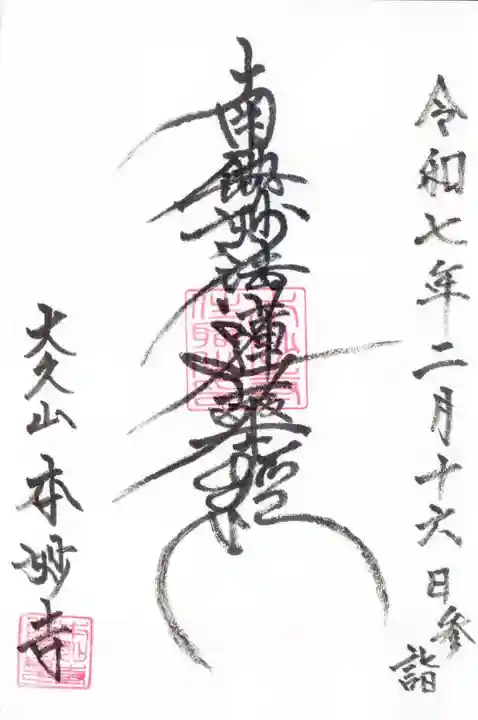 令和七年二月十六日参詣
南無妙法蓮華経
大久山 本妙寺